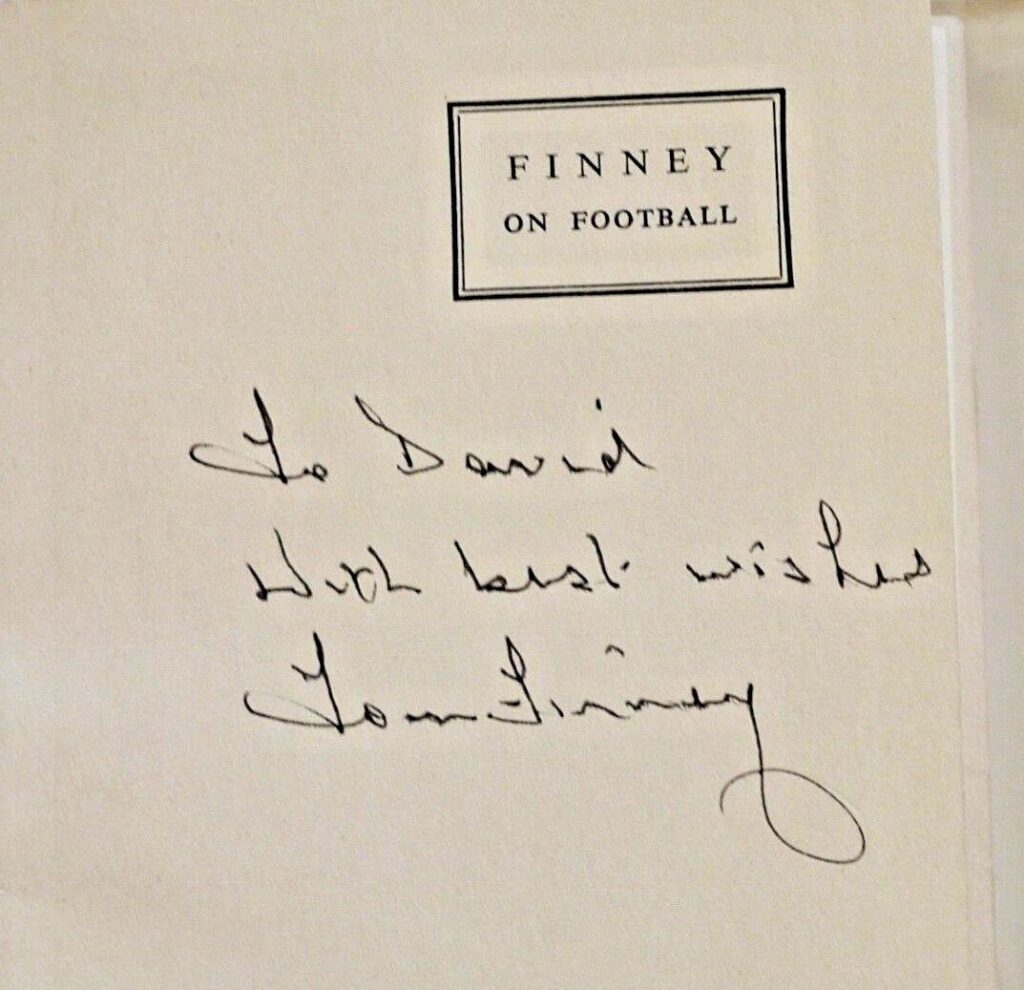 FINNEY
ON FOOTBALL
To David
With best wishes
Tom Finney